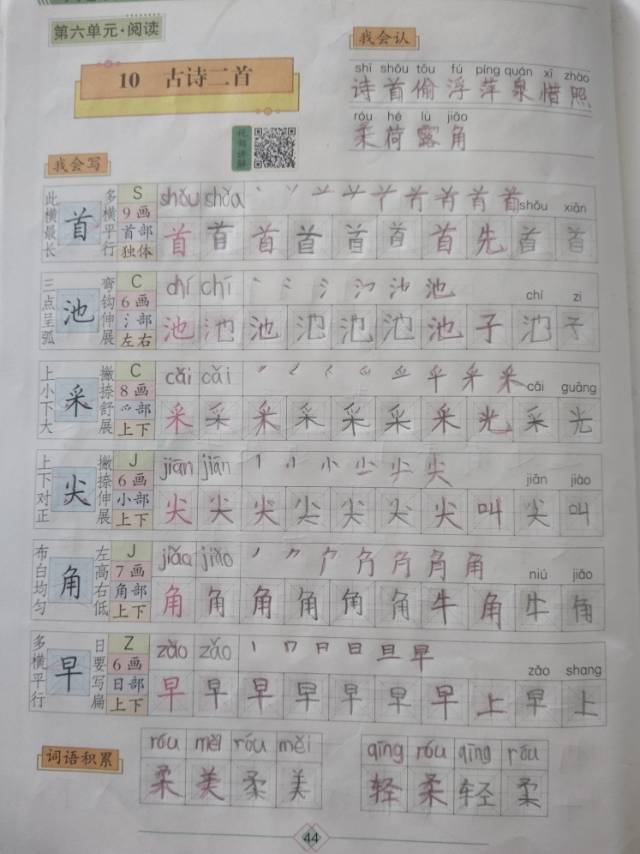 第六单元·阅读
10 古诗二首
我会认
shī shǒu tōu fú píng quán xī zhào
诗首偷浮萍泉惜照
róu hé lù jiǎo
柔荷露角
我会写
此横最长
首
多横平行
S
9画
首部
独体
shǒu
shǒu xiān
首首首首首首首先首首
三点呈弧
池
弯钩伸展
C
6画
氵部
左右
chí chí
chí zi
池池池池池池池子池子
上小下大
采
撇捺舒展
C
8画
爫部
上下
cǎi cǎi
cǎi guāng
采采采采采采采光采光
上下对正
尖
撇捺伸展
J
6画
小部
上下
jiān jiān
jiān jiào
尖尖尖尖尖尖尖叫尖叫
布白均匀
角
左高右低
J
7画
角部
上下
jiǎo jiǎo
niú jiǎo
角角角角角角牛角牛角
多横平行
早
日要写扁
Z
6画
日部
上下
zǎo zǎo
zǎo shang
早早早早早早早上早上
词语积累
róu měi róu měi
柔美柔美
qīng róu qīng róu
轻柔轻柔
44